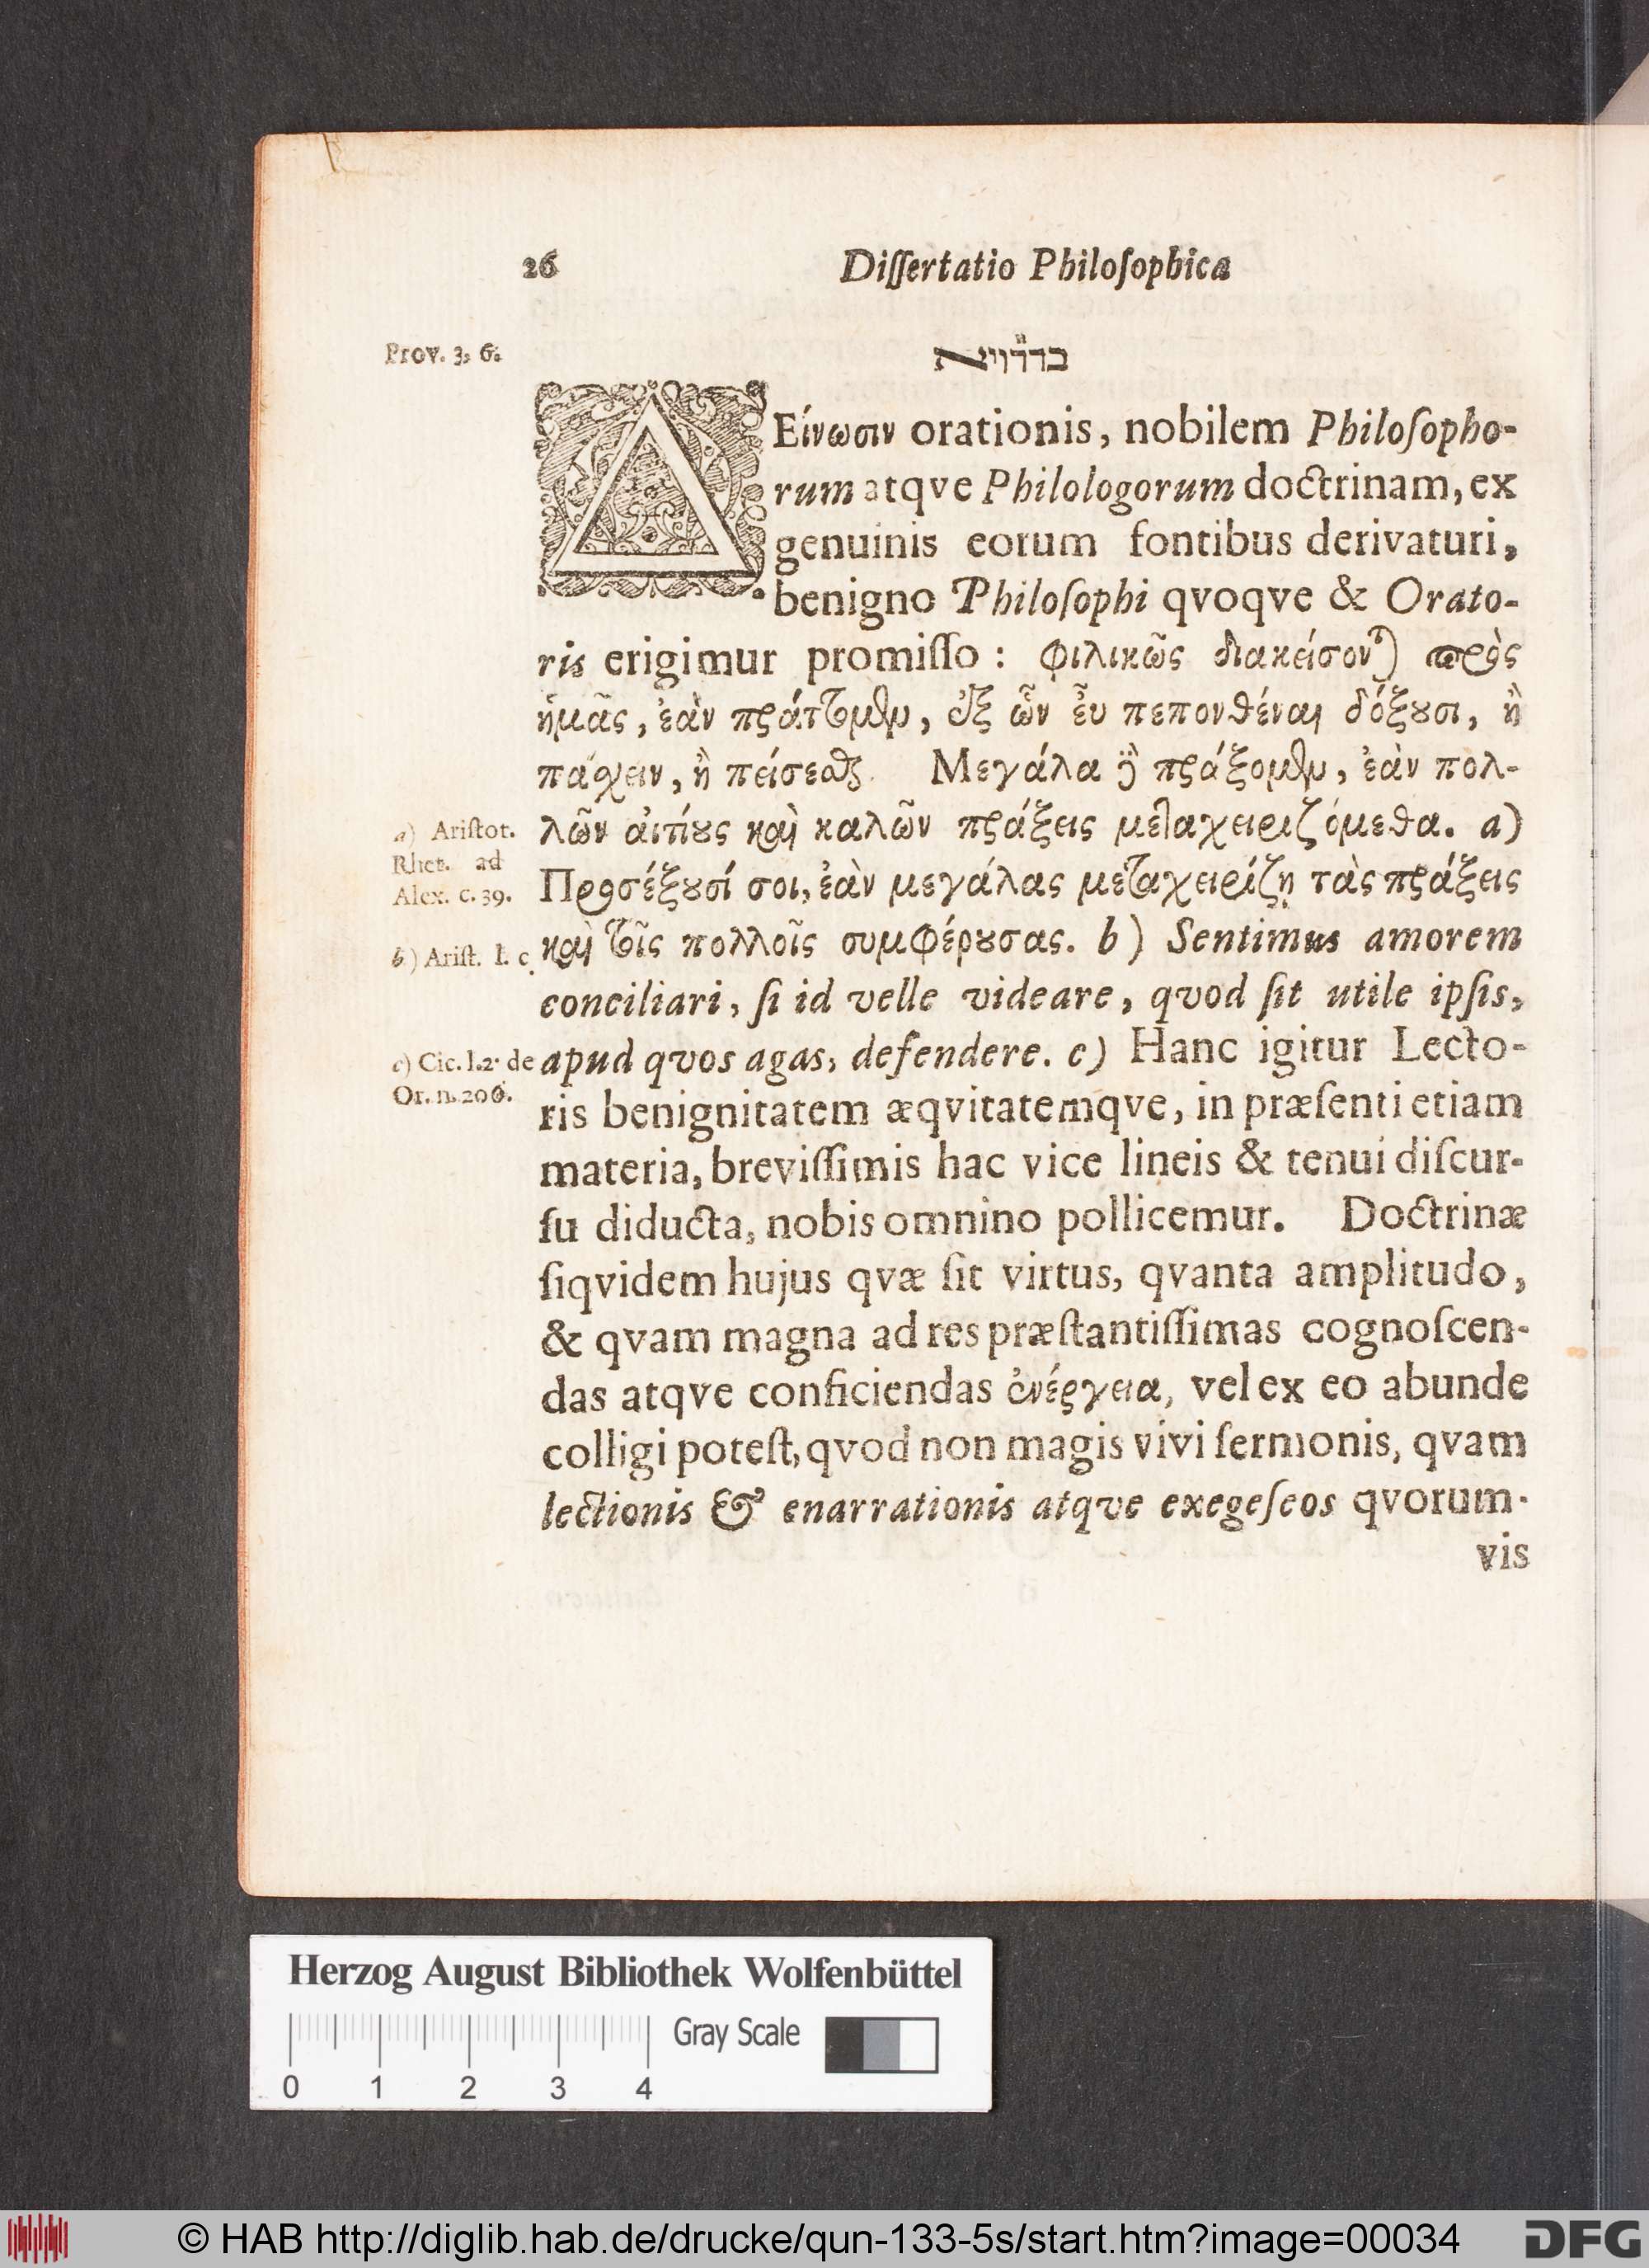 26 Dissertatio Philosophica
Prov. 3, 6.
ΔΕίνωσιν orationis, nobilem Philosopho-
rum atqve Philologorum doctrinam, ex
genuinis eorum fontibus derivaturi,
benigno Philosophi qvoqve & Orato-
ris erigimur promisso: φιλικῶς διακείσονται πρὸς
ἡμᾶς, ἐὰν πράττωμεν, ἐξ ὧν εὖ πεπονθέναι δόξουσι, ἢ
πάσχειν, ἢ πείσεσθαι. Μεγάλα δὲ πράξομεν, ἐὰν πολ-
a) Aristot. λῶν αἰτίους καὶ καλῶν πράξεις μεταχειριζόμεθα. a)
Rhet. ad
Alex. c. 39. Προσέξουσί σοι, ἐὰν μεγάλας μεταχειρίζῃ τὰς πράξεις
b) Arist. l. c. καὶ τοῖς πολλοῖς συμφέρουσας. b) Sentimus amorem
conciliari, si id velle videare, qvod sit utile ipsis,
c) Cic. l. 2. de apud qvos agas, defendere. c) Hanc igitur Lecto-
Or. n. 206. ris benignitatem æqvitatemqve, in præsenti etiam
materia, brevissimis hac vice lineis & tenui discur-
su diducta, nobis omnino pollicemur. Doctrinæ
siqvidem hujus qvæ sit virtus, qvanta amplitudo,
& qvam magna ad res præstantissimas cognoscen-
das atqve conficiendas ἐνέργεια, vel ex eo abunde
colligi potest, qvod non magis vivi sermonis, qvam
lectionis & enarrationis atqve exegeseos qvorum-
vis
Herzog August Bibliothek Wolfenbüttel
Gray Scale
0 1 2 3 4
© HAB http://diglib.hab.de/drucke/qun-133-5s/start.htm?image=00034 DFG